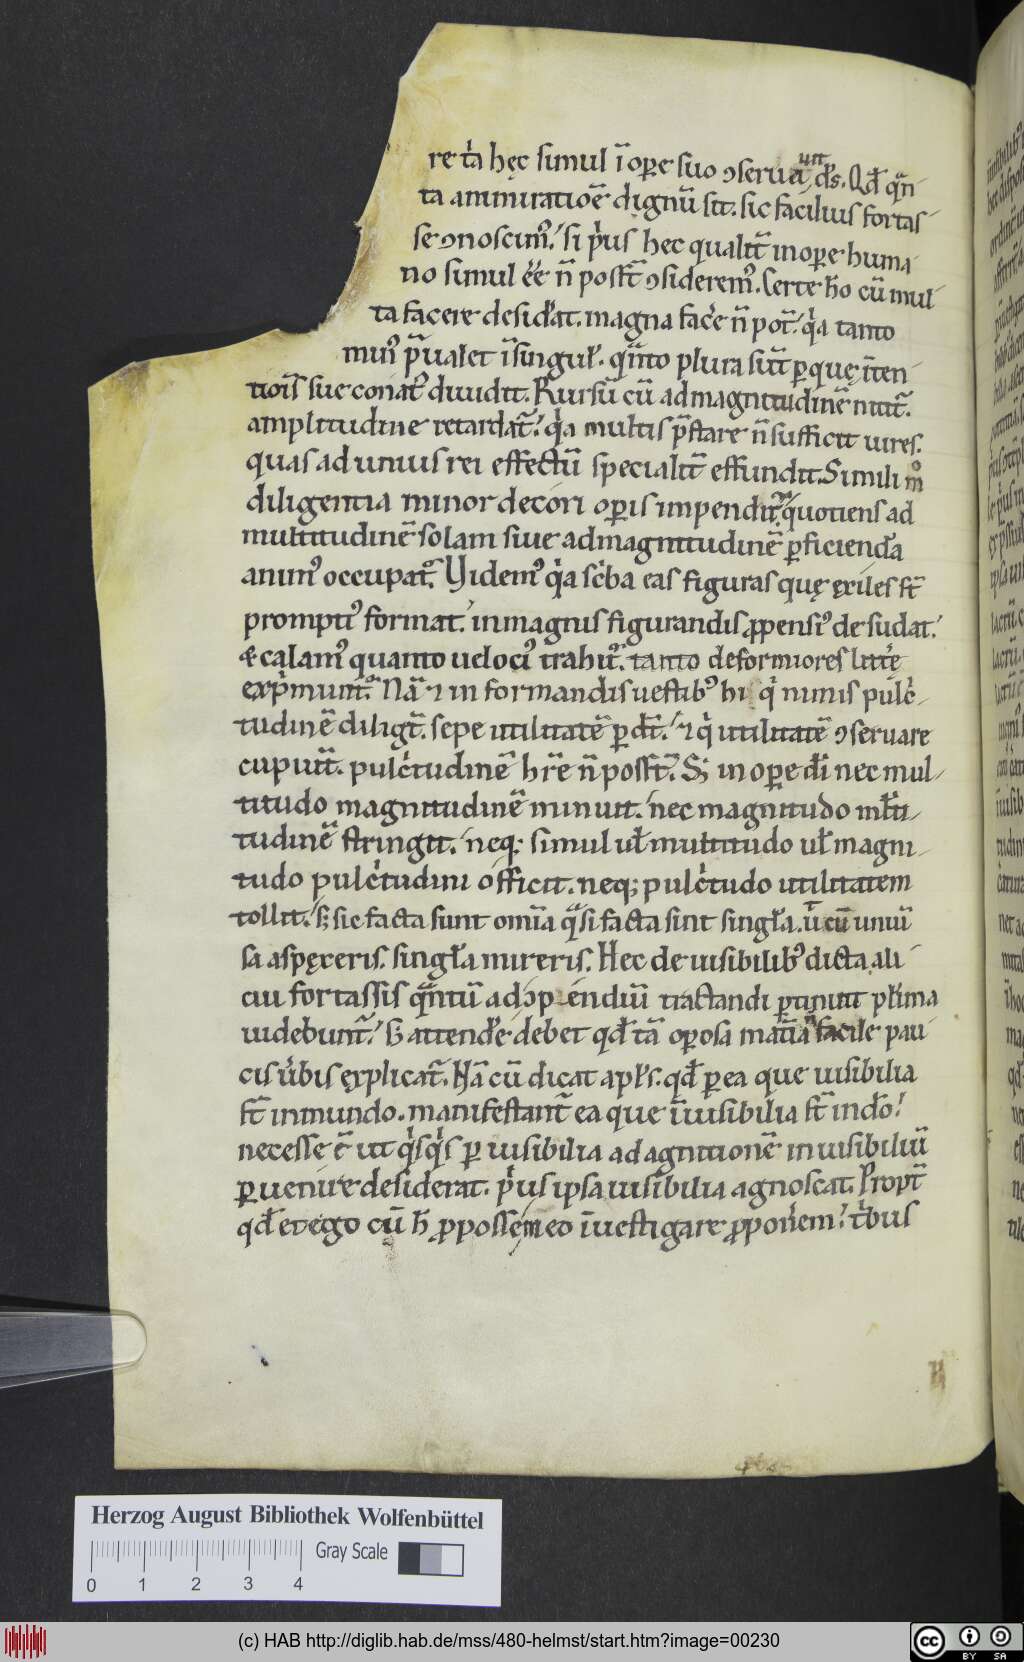 re tͥa hęc simul ī oꝑe suo ꝯseruaͧⁿᵗ, dͥs. Qd̄ qͣn-
ta ammiratioē dignū sit. sic facilius fortas-
se ꝯnoscimꝰ. si pͥus hec qualit̄ in oꝑe huma-
no simul eē n̄ poss̄t ꝯsideremꝰ. Certe h̄o cū mul-
ta facere desid̓at. magna fac̓e n̄ pot̄. qͥa tanto
minꝰ p̄ualet ī singuł. qͣnto plura sūt ꝑ quę īten-
tiōis̄ sue conatꝰ diuidit. Rursū cū ad magnitudinē nitit̄.
amplitudine retardat̄. qͥa multis p̄stare n̄ sufficit uires.
quas ad unius rei effectū specialit̄ effundit. Simili mͦ
diligentia minor decori oꝑis impendit̄ quotiens ad
multitudinē solam siue ad magnitudinē ꝑficienda
animꝰ occupat̄. Videmꝰ qͥa scͥba eas figuras quę exiles s̄t
promptiꝰ format. in magnis figurandis ꝓpensiꝰ desudat.
& calamꝰ quanto uelociꝰ trahit̄. tanto deformiores litt̓ę
exp̓munt̄. Nā ⁊ in formandis uestibꝰ hi qͥ nimis pulc̓-
tudinē diligt̄. sepe utilitatē ꝑdt̄. ⁊ qͥ utilitatē ꝯseruare
cupiūt. pulc̓tudinē h̄re n̄ poss̄t. Sꝫ in oꝑe di nec mul-
titudo magnitudinē minuit. nec magnitudo młti-
tudinē stringit. neqꝫ simul uł multitudo uł magni-
tudo pulc̓tudini officit. neqꝫ pulc̓tudo utilitatem
tollit. sꝫ sic facta sunt om̄ia qͣsi facta sint singła. ut̄ cū uniū
sa aspexeris. singła mireris. Hec de uisibilibꝰ dicta ali
cui fortassis qͣntū ad ꝯp endiū tractandi ꝑtinuit płima
uidebunt̄. sꝫ attend̓e debet qd̄ tā oꝑosa mat̄ia n̄ facile pau
cis ūbis explicat̄. Nā cū dicat apłs. qd̄ ꝑ ea que uisibilia
s̄t in mundo. manifestant̄ ea que īuisibilia s̄t in dō.
necesse ē ut qͥsqͥs ꝑ uisibilia ad agnitionē inuisibiliū
ꝑuenire desiderat. pͥus ipsa uisibilia agnoscat. Propt̄
qd̄ et ego cū h̄ ꝓposse meo īuestigare ꝓponerem. tͥbus
Herzog August Bibliothek Wolfenbüttel
Gray Scale
0 1 2 3 4
(c) HAB http://diglib.hab.de/mss/480-helmst/start.htm?image=00230
cc BY SA